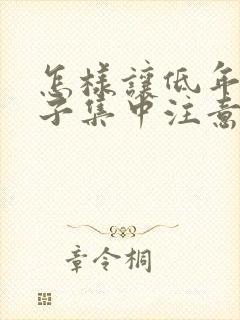 怎樣讓低年
子集中注意
章令桐